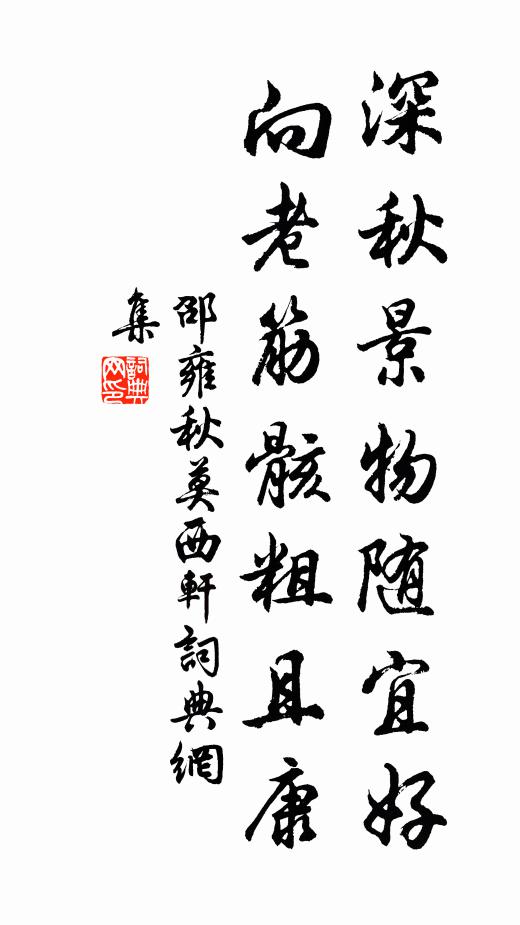 深秋景物随宜好
向老筋骸粗且康
邵雍秋莫西軒詞典網
集
詞典
网印